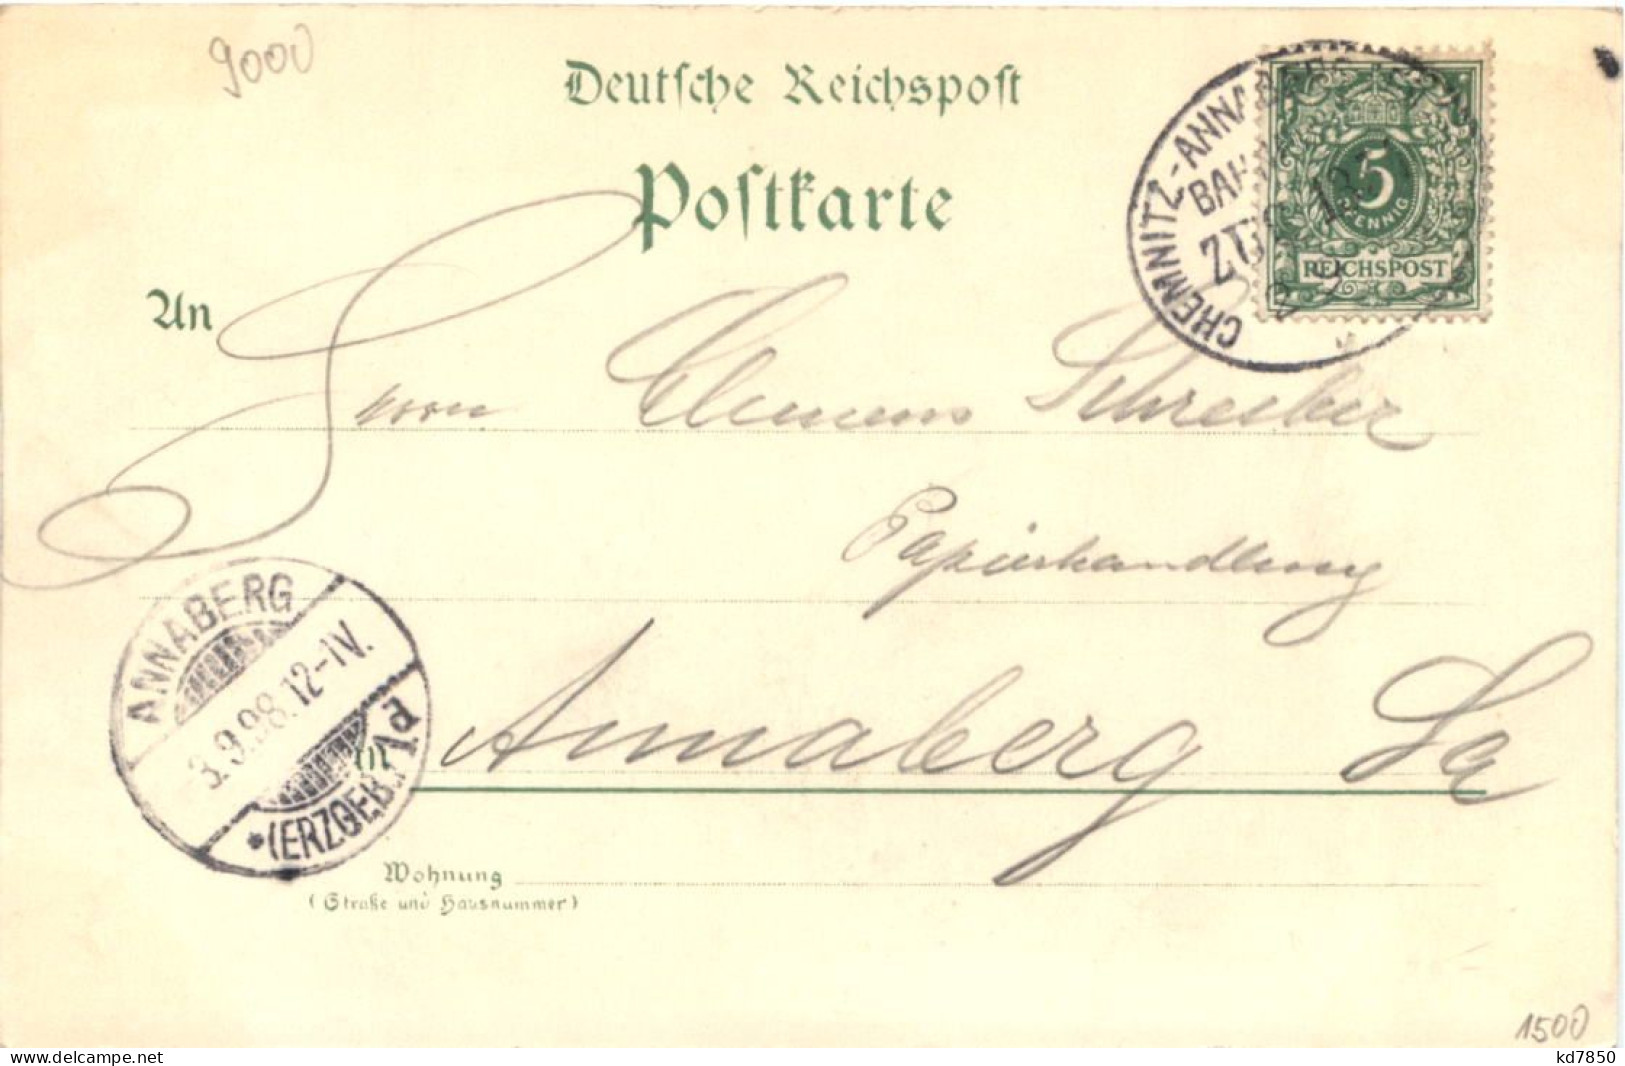 9000
Deutsche Reichspost
Postkarte
CHEMNITZ-ANNABERG
BAH
ZUG 13
5
PFENNIG
REICHSPOST
An
Herrn Clemens Schreiber
Papierhandlung
ANNABERG
3.9.98.12-1V.
*(ERZGEB.)
in Annaberg Sa
Wohnung
(Straße und Hausnummer)
1500
www.delcampe.net
kd7850